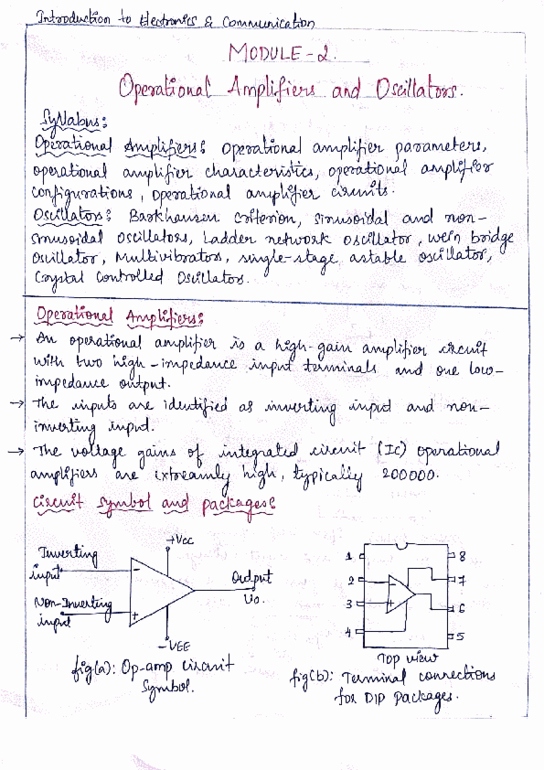 Introduction to Electronics & Communication
MODULE-2.
Operational Amplifiers and Oscillators.
Syllabus:
Operational Amplifiers: Operational amplifier parameters,
operational amplifier characteristics, operational amplifier
configurations, operational amplifier circuits.
Oscillators: Barkhausen Criterion, sinusoidal and non-
sinusoidal oscillators, Ladder network oscillator, wein bridge
oscillator, Multivibrators, single-stage astable oscillator,
Crystal Controlled Oscillators.
Operational Amplifiers:
→ An operational amplifier is a high-gain amplifier circuit
with two high-impedance input terminals and one low-
impedance output.
→ The inputs are identified as inverting input and non-
inverting input.
→ The voltage gains of integrated circuit (IC) operational
amplifiers are extreamly high, typically 200000.
Circuit Symbol and packages:
Inverting
input
Non-Inverting
input
+Vcc
-VEE
-
+
Output
Vo.
fig(a): Op-amp circuit
Symbol.
1
2
3
4
8
7
6
5
-
+
Top view
fig(b): Terminal connections
for DIP packages.